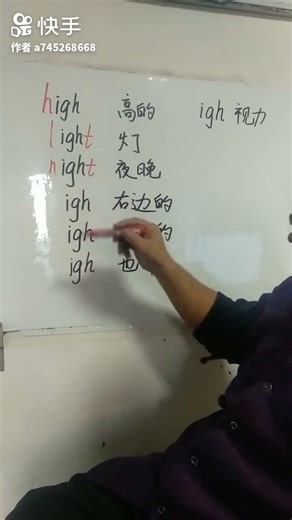 快手
作者 a745268668
high 高的 igh 视力
light 灯
night 夜晚
igh 右边的
igh 的
igh 也